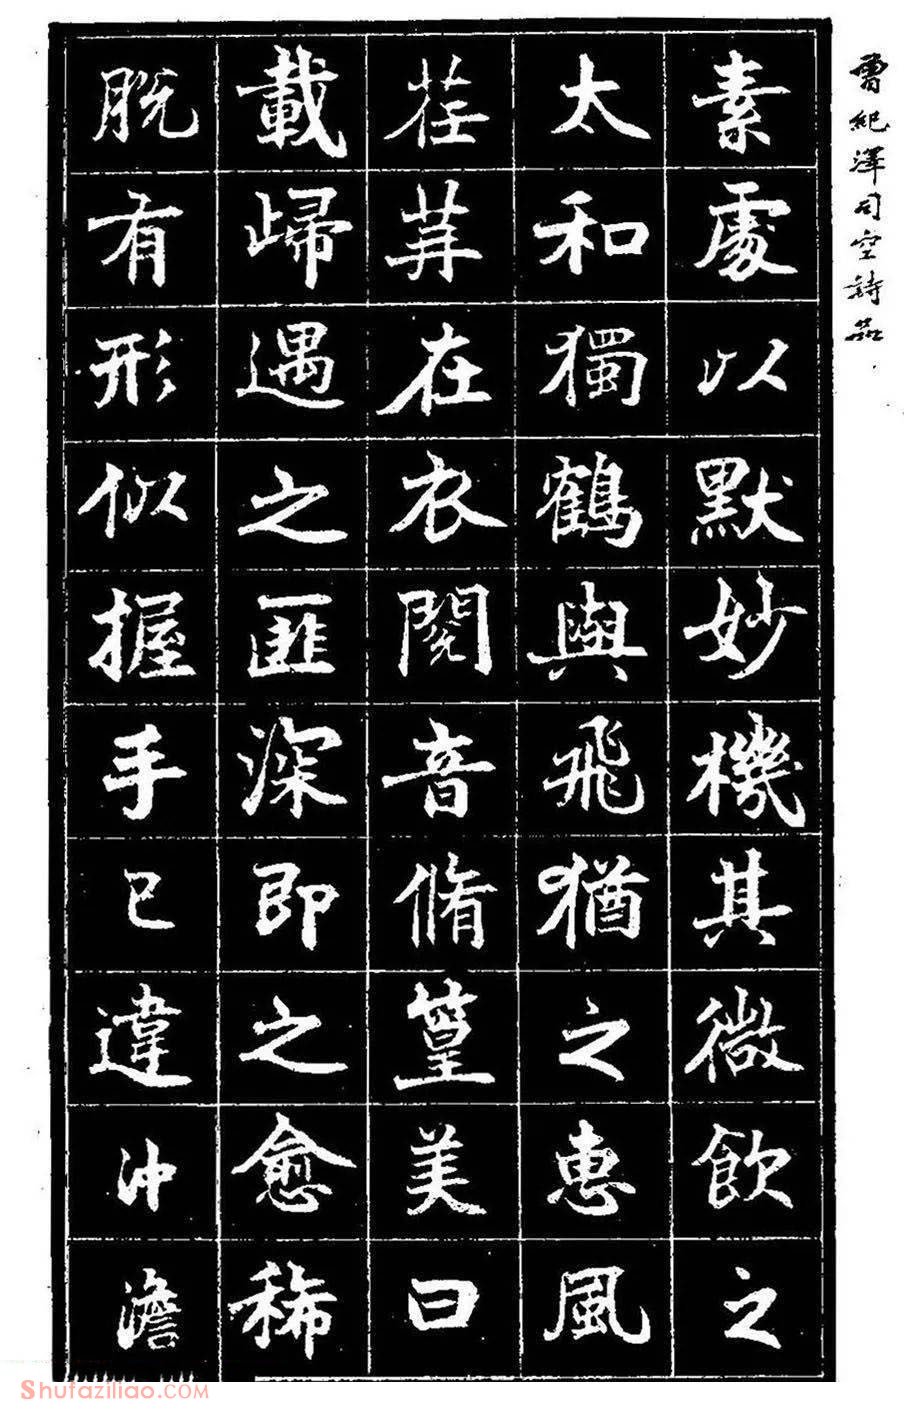 曾紀澤司空詩品
素處以默妙機其微飲之
太和獨鶴與飛猶之惠風
荏苒在衣閱音脩篁美曰
載歸遇之匪深即之愈稀
脫有形似握手已違沖澹
Shufaziliao.COM